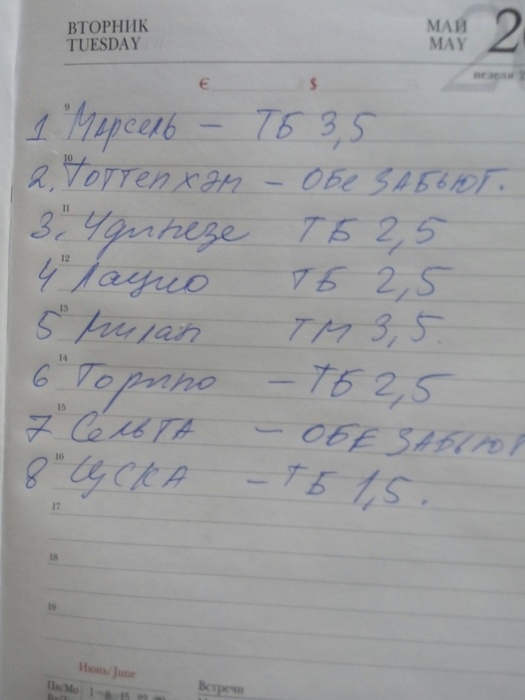 ВТОРНИК МАЙ
TUESDAY MAY
неделя
€ $
9
1 Марсель – ТБ 3,5
10
2. Тоттенхэм – ОБЕ ЗАБЬЮТ.
11
3. Удинезе ТБ 2,5
12
4 Лацио ТБ 2,5
13
5 Милан ТМ 3,5.
14
6 Торино – ТБ 2,5
15
7 Сельта – ОБЕ ЗАБЬЮТ
16
8 ЦСКА – ТБ 1,5.
17
18
19
Июнь/June
Пн/Mo 1 8 15 22 29 Встречи